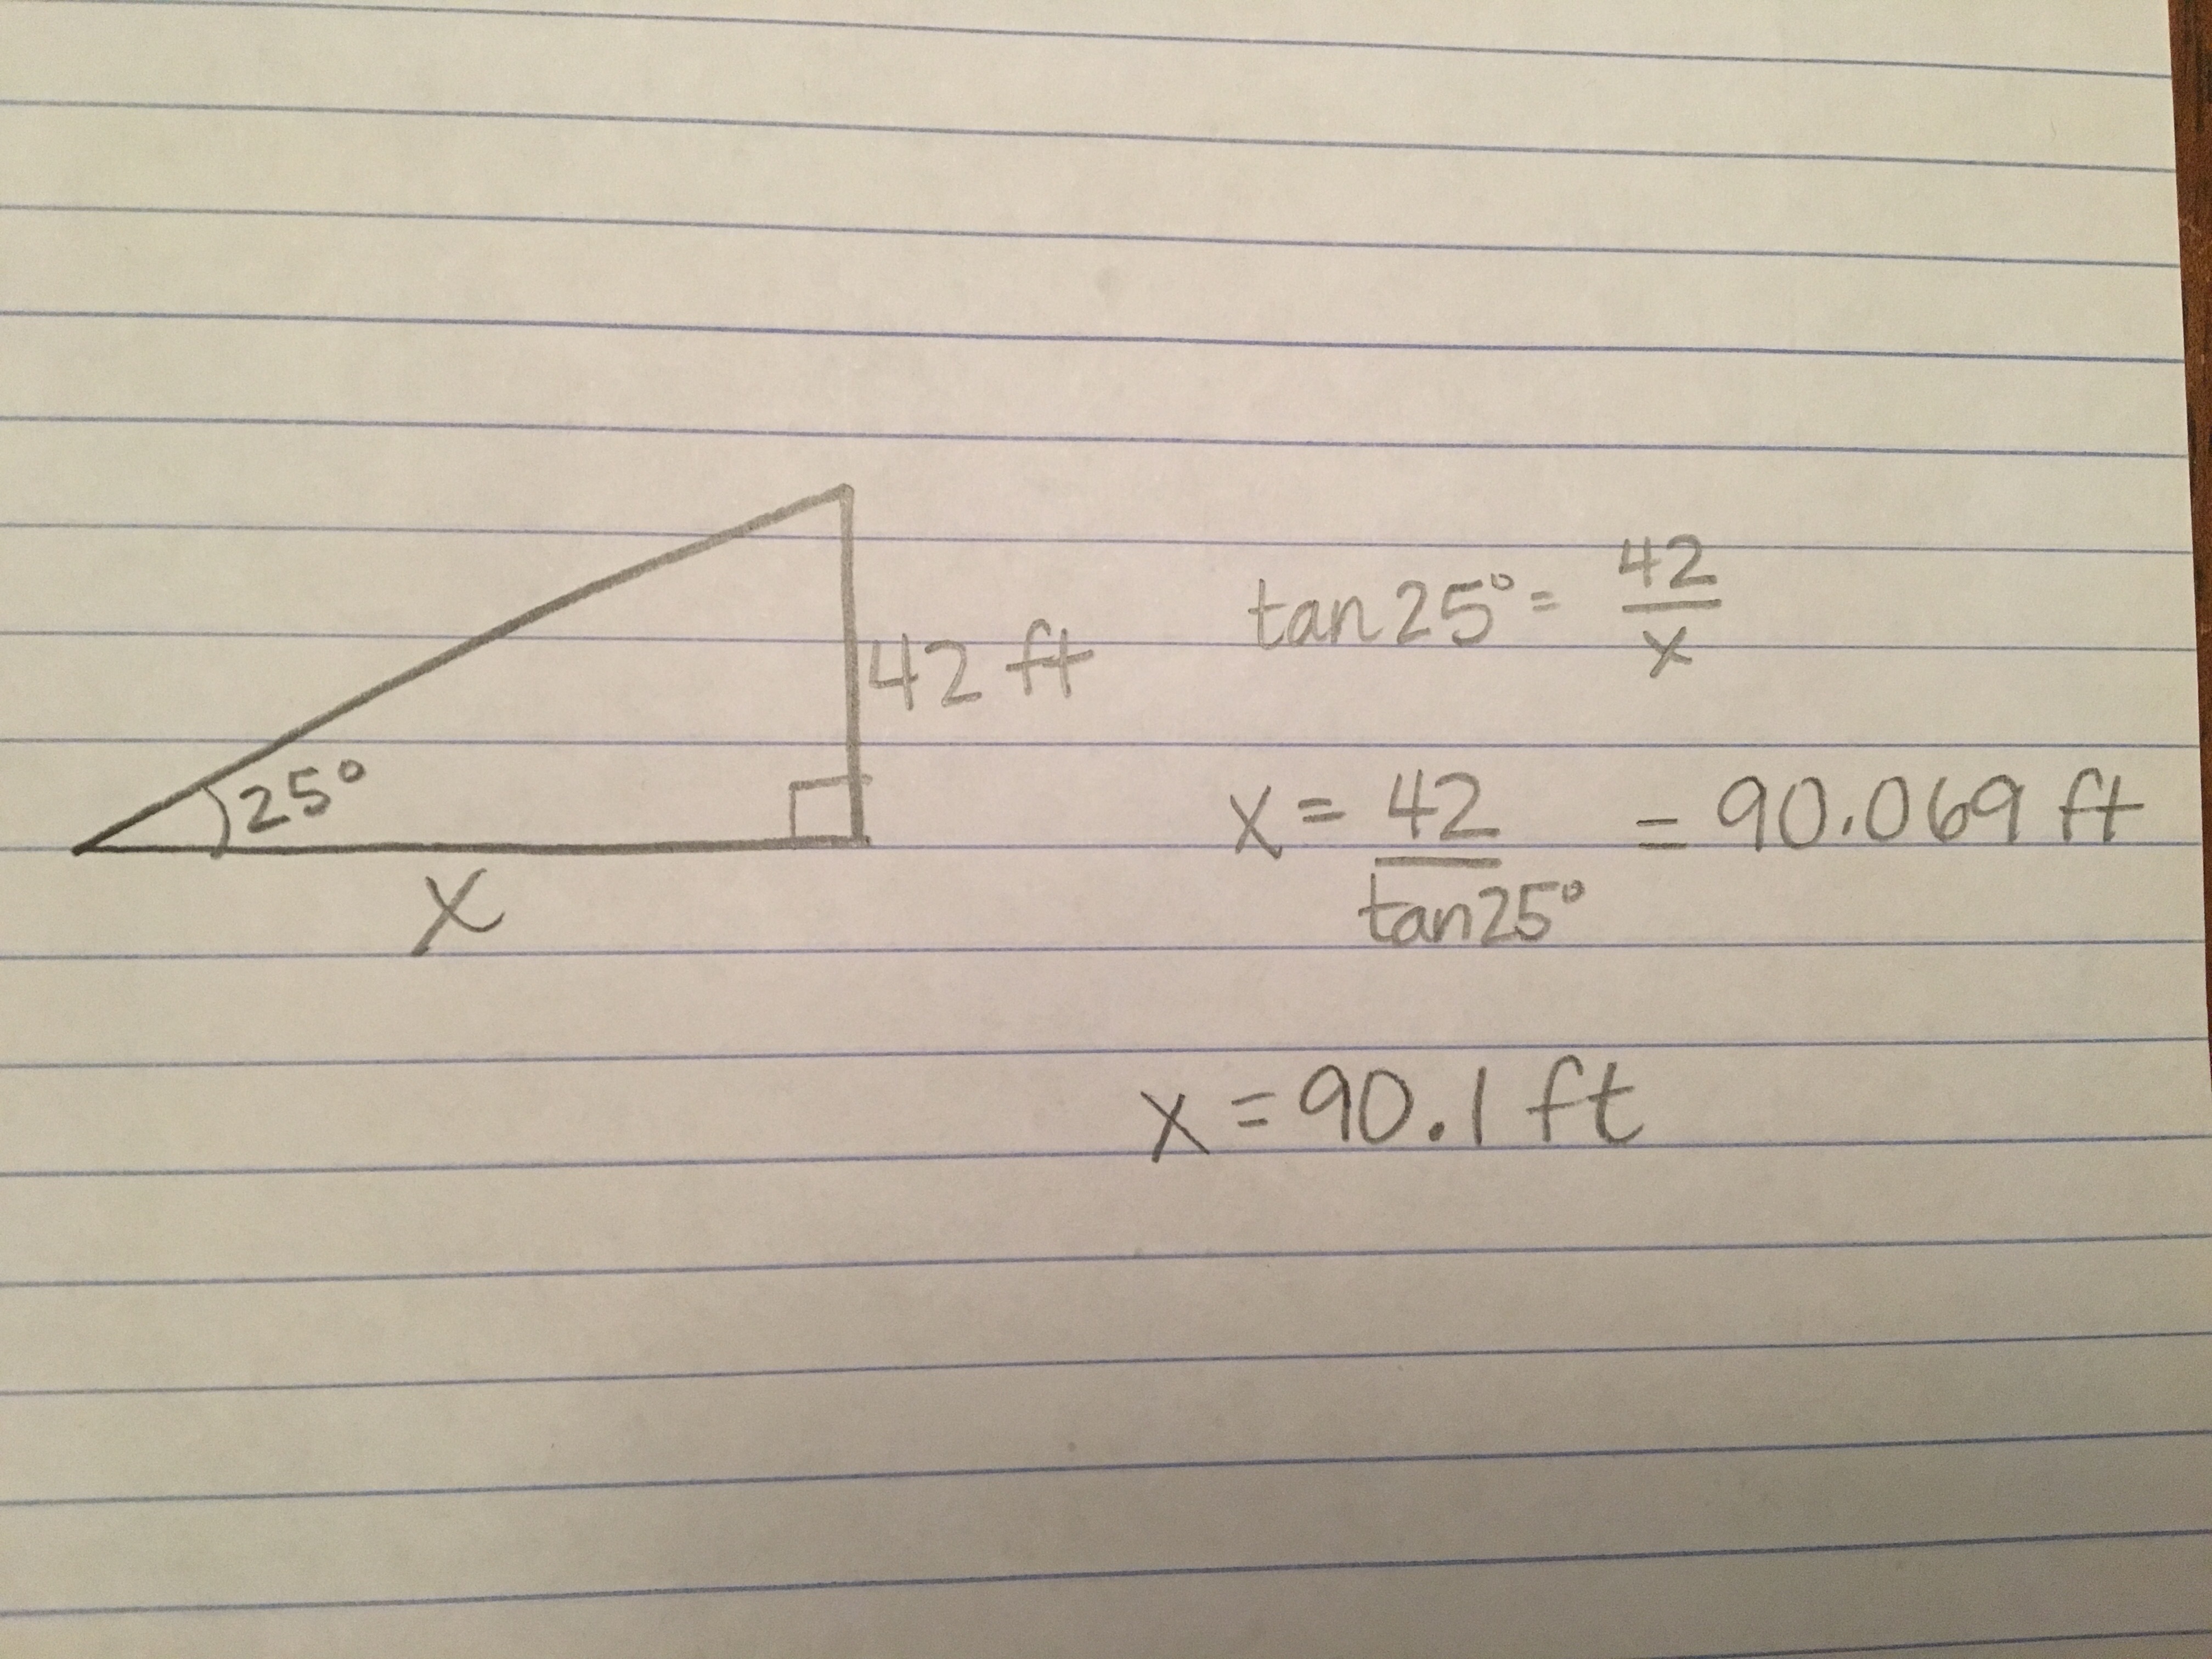 25°
42 ft
x
tan 25° = 42/x
x = 42/tan25° = 90.069 ft
x = 90.1 ft